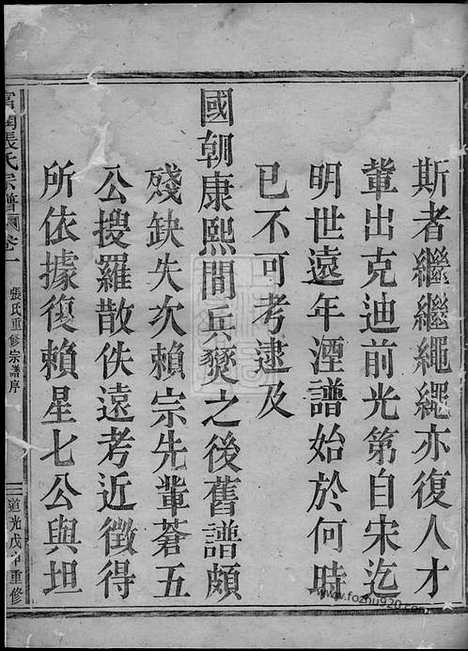 斯者繼繼繩繩亦復人才
輩出克迪前光第自宋迄
明世遠年湮譜始於何時
已不可考逮及
國朝康熙間兵燹之後舊譜頗
殘缺失次賴宗先輩蒼五
公搜羅散佚遠考近徵得
所依據復賴星七公與坦
張氏宗譜 卷一
張氏重修宗譜序
道光戊 重修
www.fozhu920.com